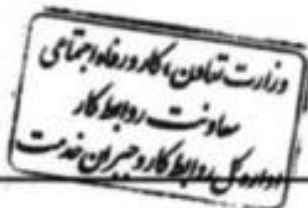 وزارت تعاون، کار و رفاه اجتماعی
معاونت روابط کار
اداره کل روابط کار و جبران خدمت